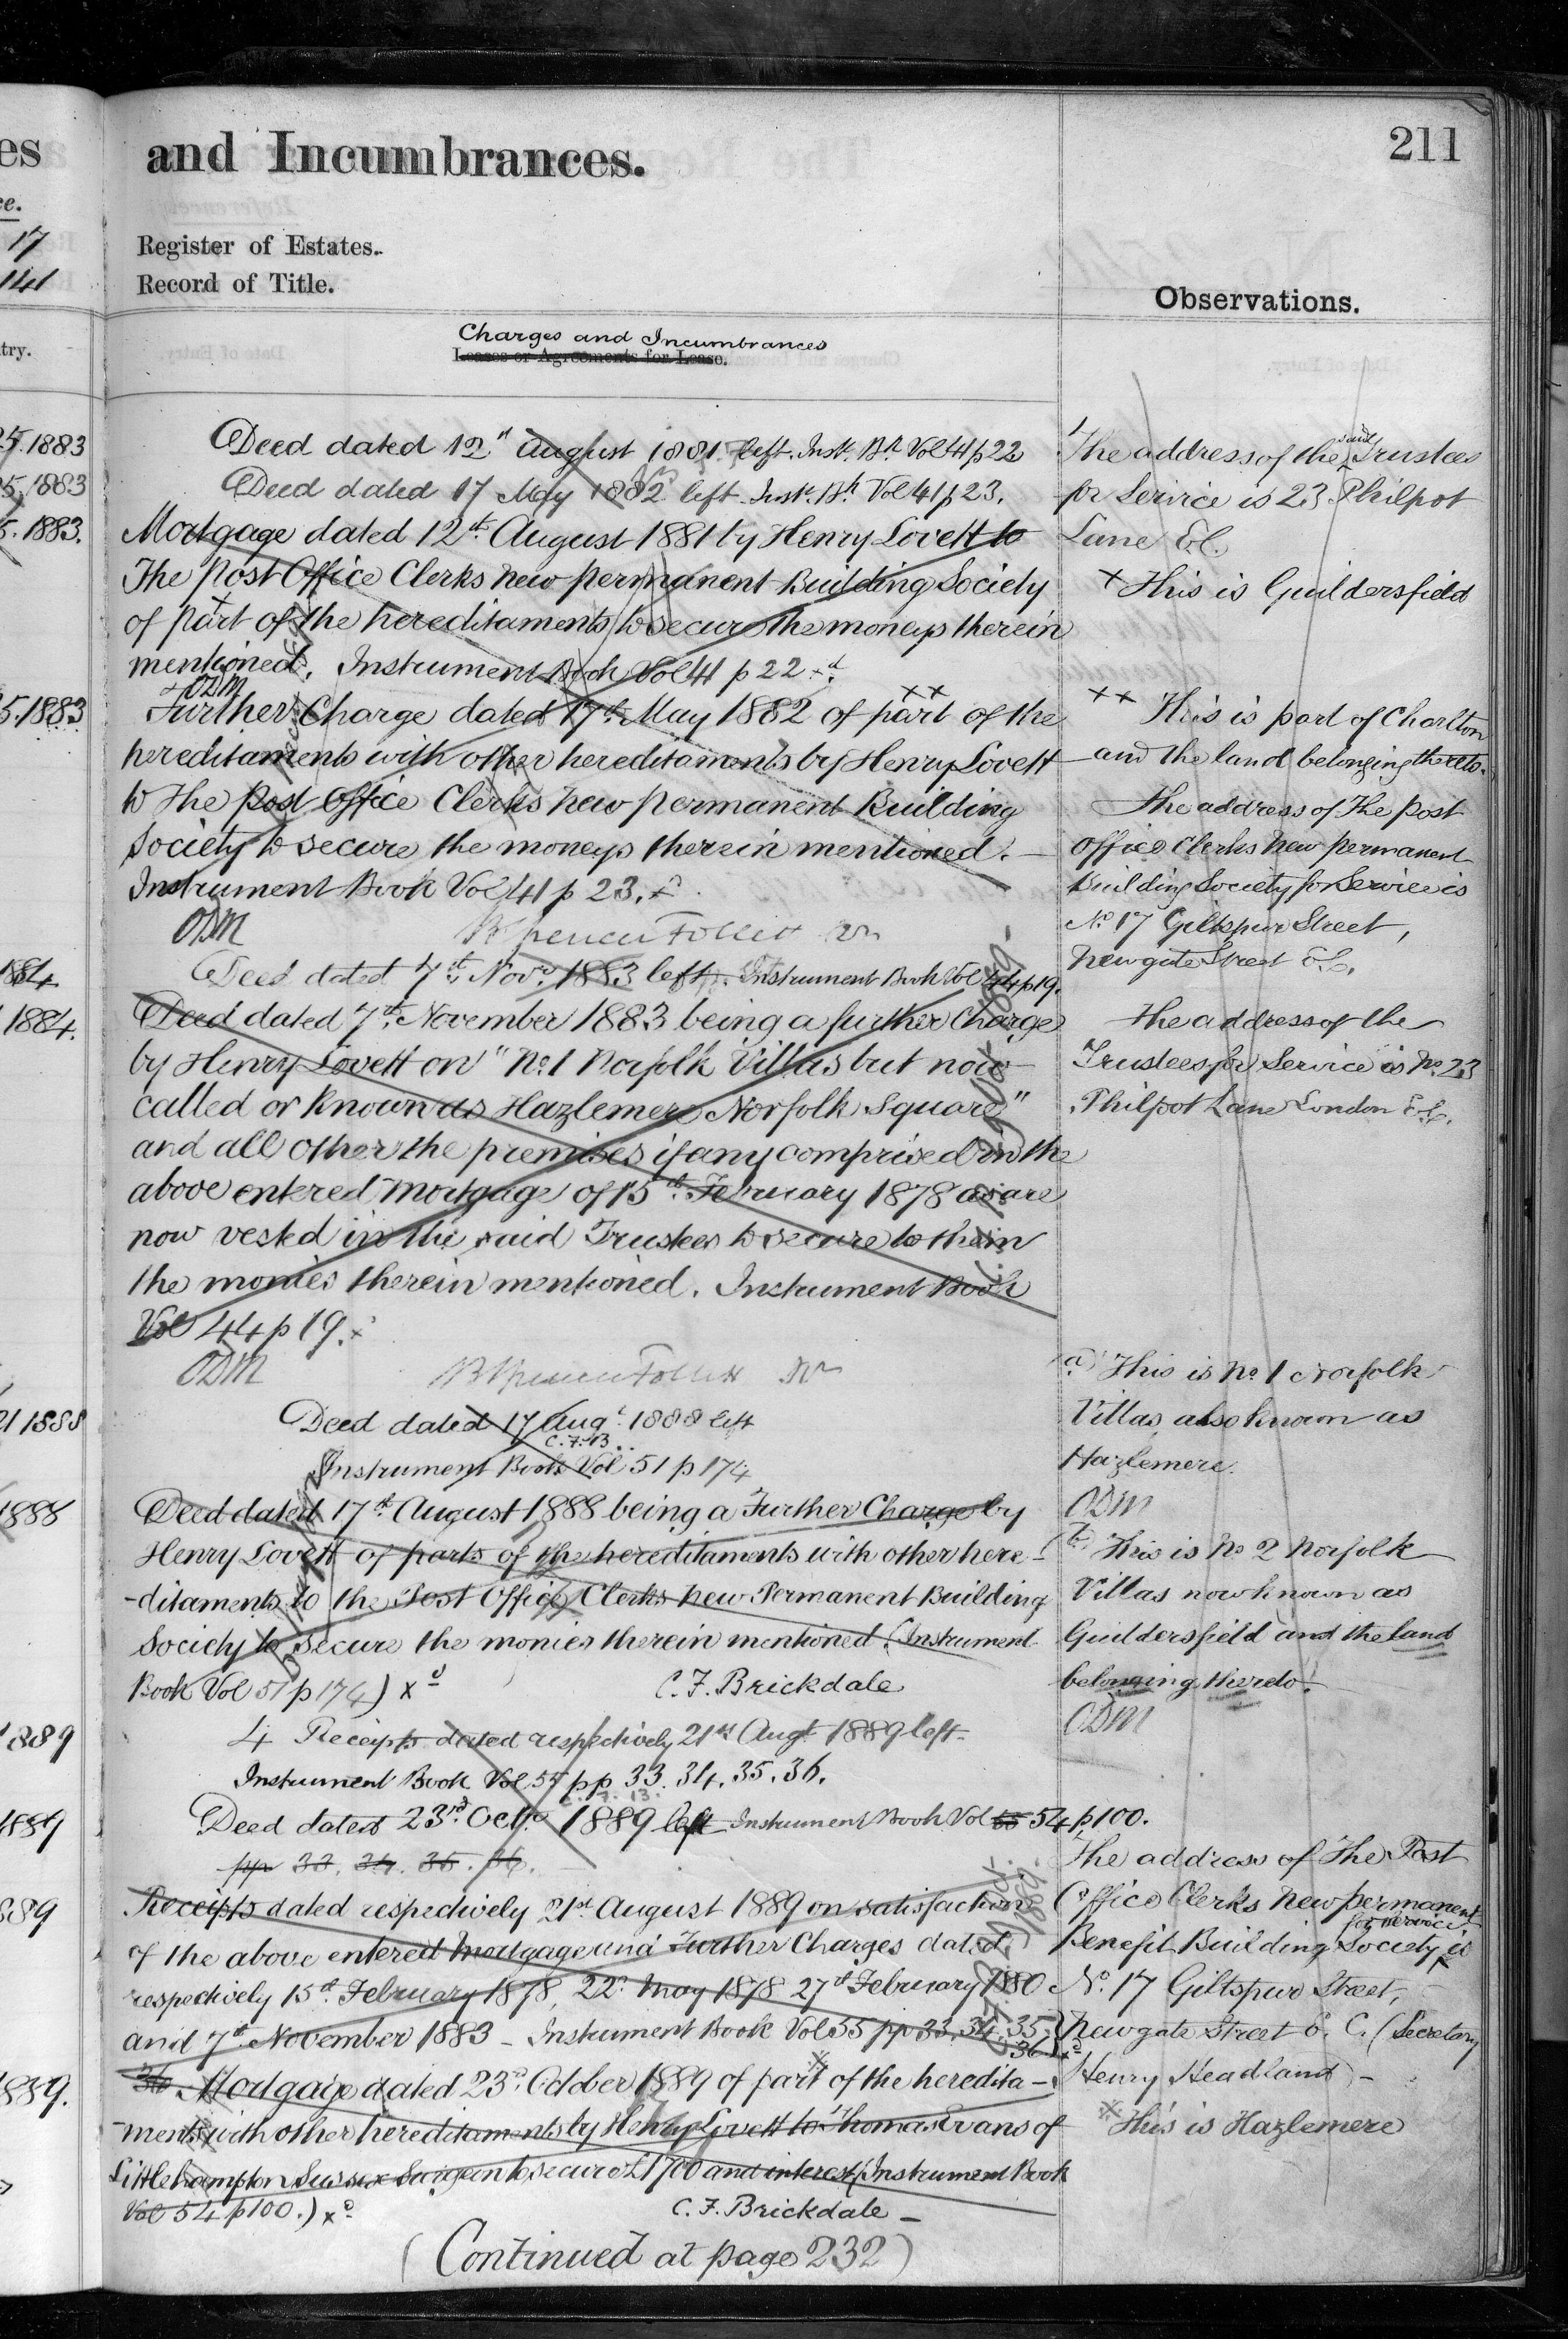 es
ce.
17
141
try.
25.1883
25.1883
5.1883.
5.1883
1884
1884.
21 1888
1888
1889
1889
889
1889.
and Incumbrances.
211
Register of Estates.
Record of Title.
Charges and Incumbrances
Leases or Agreements for Lease.
Deed dated 12th August 1881 left. Inst. Bk Vol 41 p 22
Deed dated 17 May 1882 left Inst. Bk Vol 41 p 23.
Mortgage dated 12th August 1881 by Henry Lovett to
The Post Office Clerks New Permanent Building Society
of part of the hereditaments to secure the moneys therein
mentioned. Instrument Book Vol 41 p 22
ODM
Further Charge dated 17th May 1882 of part of the
hereditaments with other hereditaments by Henry Lovett
to the Post Office Clerks New Permanent Building
Society to secure the moneys therein mentioned. —
Instrument Book Vol 41 p 23.
ODM
Deed dated 7th Novr. 1883 left. Instrument Book Vol 44 p 19.
Deed dated 7th November 1883 being a further Charge
by Henry Lovett on "No. 1 Norfolk Villas but now
called or known as Hazlemere Norfolk Square"
and all other the premises if any comprised in the
above entered Mortgage of 15th February 1878 as are
now vested in the said Trustees to secure to them
the monies therein mentioned. Instrument Book
Vol 44 p 19.
ODM
Deed dated 17 Augt. 1888 left
C.F.B.
Instrument Book Vol 51 p 174
Deed dated 17th August 1888 being a Further Charge by
Henry Lovett of parts of the hereditaments with other here-
-ditaments to the Post Office Clerks New Permanent Building
Society to secure the monies therein mentioned. (Instrument
Book Vol 51 p 174)
C. F. Brickdale
4 Receipts dated respectively 21st Augt 1889 left
Instrument Book Vol 55 pp 33. 34. 35. 36.
C. F. B.
Deed dated 23rd Octr. 1889 left Instrument Book Vol 55 54 p 100.
pp 33. 34. 35. 36.
Receipts dated respectively 21st August 1889 on satisfaction
of the above entered Mortgage and Further Charges dated
respectively 15th February 1878, 22d May 1878 27th February 1880
and 7th November 1883 - Instrument Book Vol 55 pp 33, 34, 35,
36)
36 Mortgage dated 23d October 1889 of part of the heredita-
-ments with other hereditaments by Henry Lovett to Thomas Evans of
Littlehampton Sussex Surgeon to secure £1700 and interest (Instrument Book
Vol 54 p 100.)
C. F. Brickdale
(Continued at page 232)
Observations.
The address of the said Trustees
for Service is 23 Philpot
Lane E.C.
x This is Guildersfield
xx This is part of Charlton
and the land belonging thereto.
The address of The Post
Office Clerks New Permanent
Building Society for Service is
No. 17 Giltspur Street,
Newgate Street E.C.
The address of the
Trustees for Service is No. 23
Philpot Lane London E.C.
(a) This is No. 1 Norfolk
Villas also known as
Hazlemere.
ODM
(b) This is No 2 Norfolk
Villas now known as
Guildersfield and the land
belonging thereto.
ODM
The address of The Post
Office Clerks New Permanent
for service
Benefit Building Society is
No. 17 Giltspur Street,
Newgate Street E. C. (Secretary
Henry Headland) -
This is Hazlemere